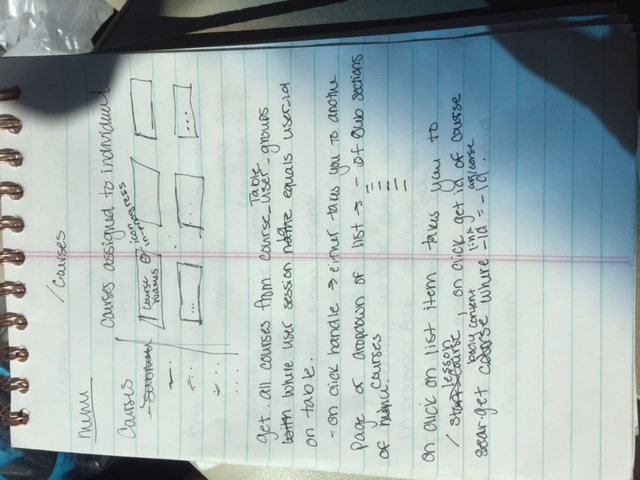 /courses
menu
courses assigned to individual
Courses
course names
icon in-progress
get all courses from course_user_groups Table
where user session id equals user_id
on table.
- on click handle → either takes you to another
page or dropdown of list → - of sub sections
of courses
on click on list item takes you to
/ lesson on click get id of course
get body content where link_id =